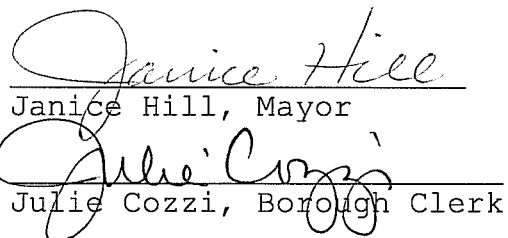 Janice Hill
Janice Hill, Mayor
Julie Cozzi
Julie Cozzi, Borough Clerk